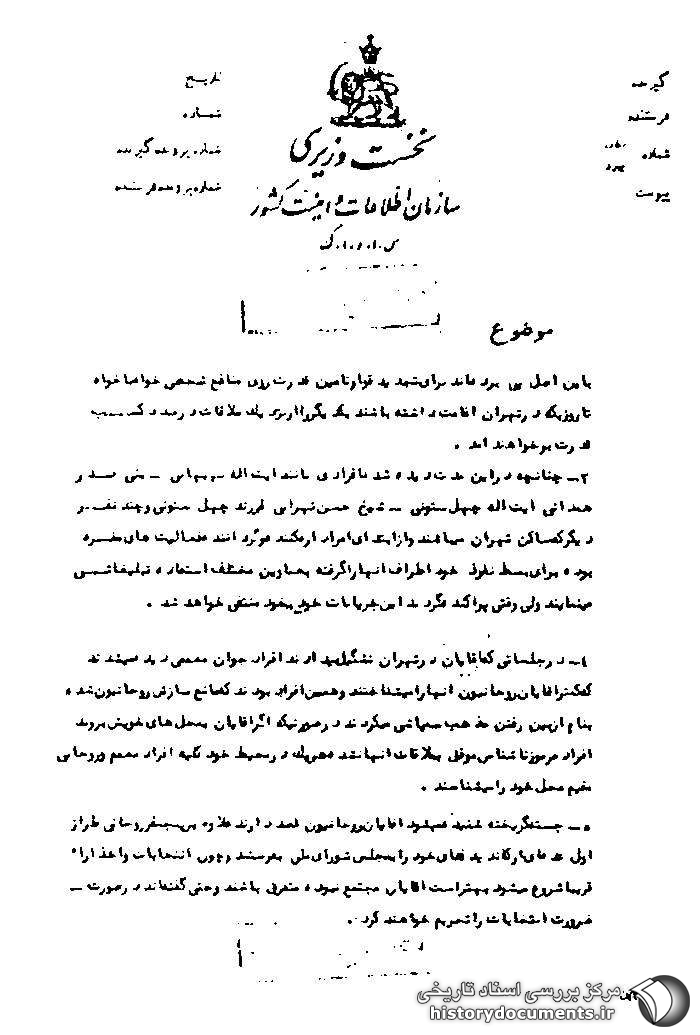 گیرنده
فرستنده
شماره
پیوست
تاریخ
شماره
شماره پرونده گیرنده
شماره پرونده فرستنده
نخست وزیری
سازمان اطلاعات و امنیت کشور
س.ا.و.ا.ک
موضوع
باین اصل پی برده‌اند برای تهدید قوا و تامین قدرت روی منافع شخصی خواه ناخواه
تا روزیکه در تهران اقامت داشته باشند یکدیگر را لااقل ملاقات و درصدد کسب
قدرت برخواهند آمد .
۳ـ چنانچه در این مدت دیده شد افرادی مانند ایت اله بهبهانی ـ بنی صدر
همدانی ایت اله چهل ستونی ـ شیخ حسن تهرانی فرزند چهل ستونی و چند نفر
دیگر که ساکن تهران میباشند و از ابتدای امر
بوده برای بسط نفوذ خود اطراف انها را گرفته بعناوین مختلف استفاده تبلیغاتی
مینمایند ولی وقتی پراکنده گردند این جریانات خود بخود منتفی خواهد شد .
٤ـ در جلساتی که اقایان در تهران تشکیل میدادند افراد جوان معممی دیده میشدند
که کمتر اقایان روحانیون انها را میشناختند و همین افراد بودند که مانع سازش روحانیون شده
بنام ازبین رفتن مذهب سمپاشی میکردند در صورتیکه اگر اقایان بمحل های خویش بروند
افراد مرموز ناشناس موفق بملاقات انها نشده و هر یک در محیط خود کلیه افراد معمم و روحانی
مقیم محل خود را میشناسند .
٥ـ جسته گریخته شنیده میشود اقایان روحانیون قصد دارند علاوه بر پنج نفر روحانی طراز
اول عده‌ای از کاندیدهای خود را بمجلس شورای ملی بفرستند و چون انتخابات و اخذ اراء
قریبا شروع میشود بهتر است اقایان مجتمع نبوده متفرق باشند و حتی گفته‌اند در صورت ـ
ضرورت انتخابات را تحریم خواهند کرد .
مرکز بررسی اسناد تاریخی
historydocuments.ir